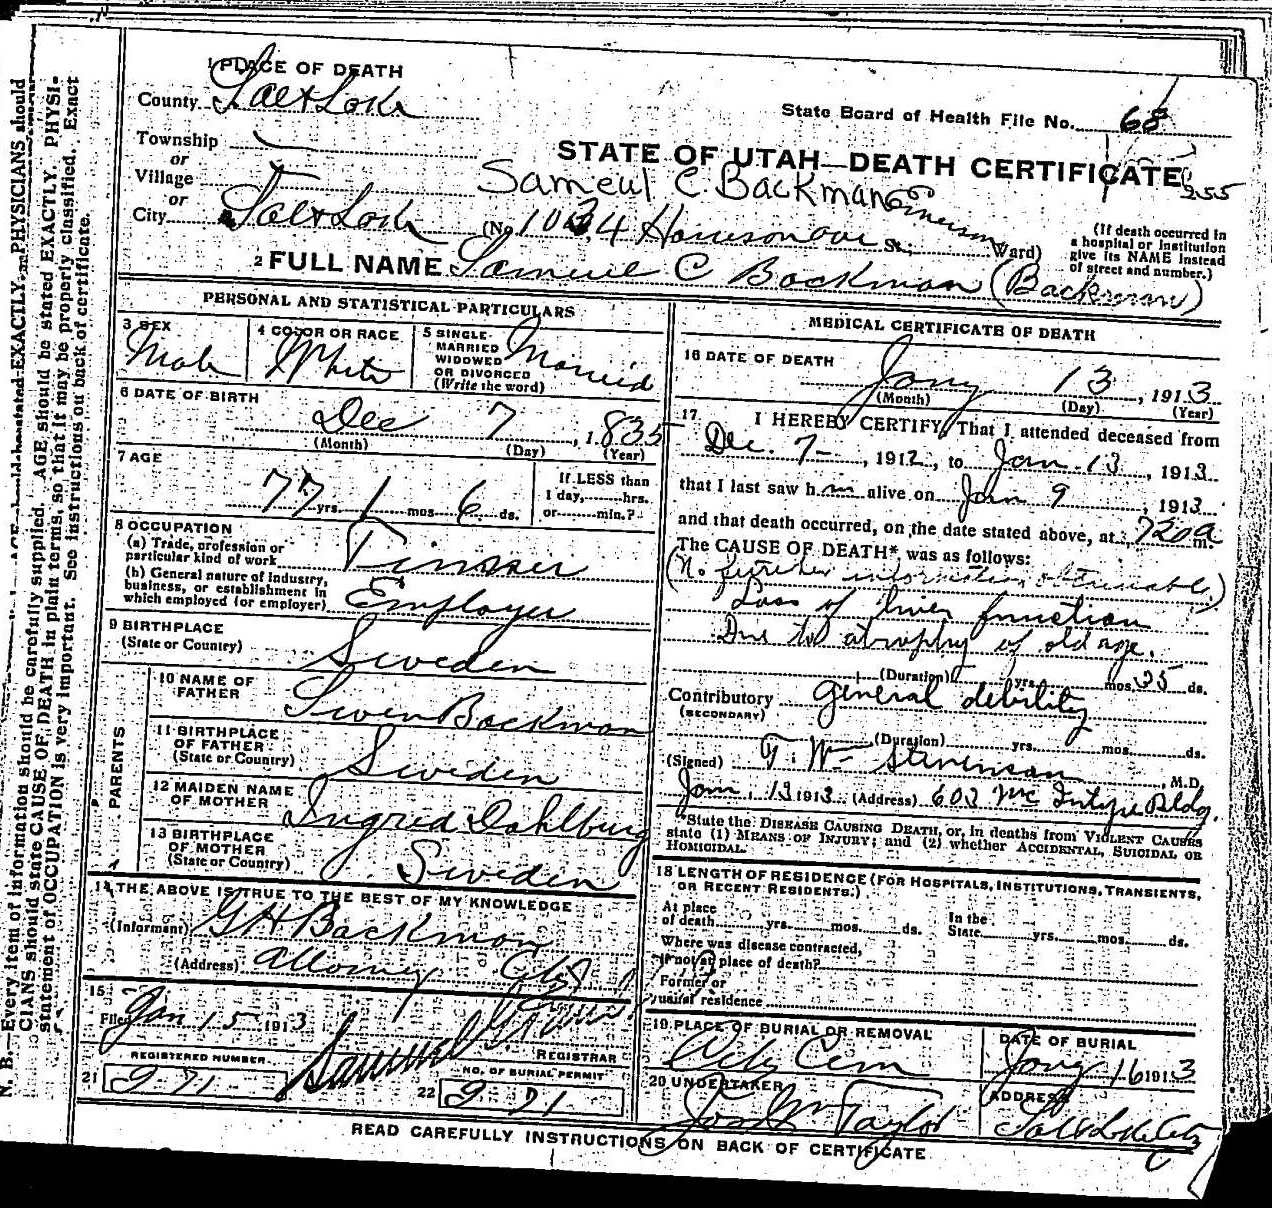 1 PLACE OF DEATH
County Salt Lake
State Board of Health File No. 68
Township
or
Village
or
City Salt Lake
STATE OF UTAH—DEATH CERTIFICATE
255
Sameul C. Backman
Emerson
(No. 1034 Harrison ave St.; Ward)
(If death occurred in
a hospital or institution
give its NAME instead
of street and number.)
2 FULL NAME Samuel C Backman (Backman)
PERSONAL AND STATISTICAL PARTICULARS
3 SEX
Male
4 COLOR OR RACE
White
5 SINGLE
MARRIED
WIDOWED
OR DIVORCED
(Write the word)
Married
6 DATE OF BIRTH
Dec 7, 1835
(Month) (Day) (Year)
7 AGE
77 yrs. 1 mos. 6 ds.
If LESS than
1 day, hrs.
or min.?
8 OCCUPATION
(a) Trade, profession or
particular kind of work Tinner
(b) General nature of Industry,
business, or establishment in
which employed (or employer) Employer
9 BIRTHPLACE
(State or Country) Sweden
PARENTS
10 NAME OF
FATHER Swen Backman
11 BIRTHPLACE
OF FATHER
(State or Country) Sweden
12 MAIDEN NAME
OF MOTHER Ingrid Dahlburg
13 BIRTHPLACE
OF MOTHER
(State or Country) Sweden
14 THE ABOVE IS TRUE TO THE BEST OF MY KNOWLEDGE
(Informant) G H Backman
(Address) Attorney City
15
Filed Jan 15 1913
REGISTRAR
REGISTERED NUMBER
21 271
NO. OF BURIAL PERMIT
22 271
MEDICAL CERTIFICATE OF DEATH
16 DATE OF DEATH
Jany 13, 1913
(Month) (Day) (Year)
17 I HEREBY CERTIFY, That I attended deceased from
Dec. 7-, 1912, to Jan. 13, 1913
that I last saw him alive on Jan 9, 1913
and that death occurred, on the date stated above, at 720 a m.
The CAUSE OF DEATH* was as follows:
(No further information obtainable.)
Loss of liver function
Due to atrophy of old age.
(Duration) yrs. mos. 35 ds.
Contributory general debility
(SECONDARY)
(Duration) yrs. mos. ds.
(Signed) F. W. Stevenson, M.D.
Jan. 13 1913 (Address) 603 McIntyre Bldg.
*State the DISEASE CAUSING DEATH, or, in deaths from VIOLENT CAUSES
state (1) MEANS OF INJURY; and (2) whether ACCIDENTAL, SUICIDAL OR
HOMICIDAL.
18 LENGTH OF RESIDENCE (FOR HOSPITALS, INSTITUTIONS, TRANSIENTS,
OR RECENT RESIDENTS.)
At place
of death yrs. mos. ds.
In the
State yrs. mos. ds.
Where was disease contracted,
If not at place of death?
Former or
usual residence
19 PLACE OF BURIAL OR REMOVAL
City Cem
DATE OF BURIAL
Jany 16 1913
20 UNDERTAKER
Jos Wm Taylor
ADDRESS
Salt Lake City
READ CAREFULLY INSTRUCTIONS ON BACK OF CERTIFICATE
N. B.—Every item of information should be carefully supplied. AGE should be stated EXACTLY. PHYSICIANS should
CIANS should state CAUSE OF DEATH in plain terms, so that it may be properly classified. Exact
statement of OCCUPATION is very important. See instructions on back of certificate.